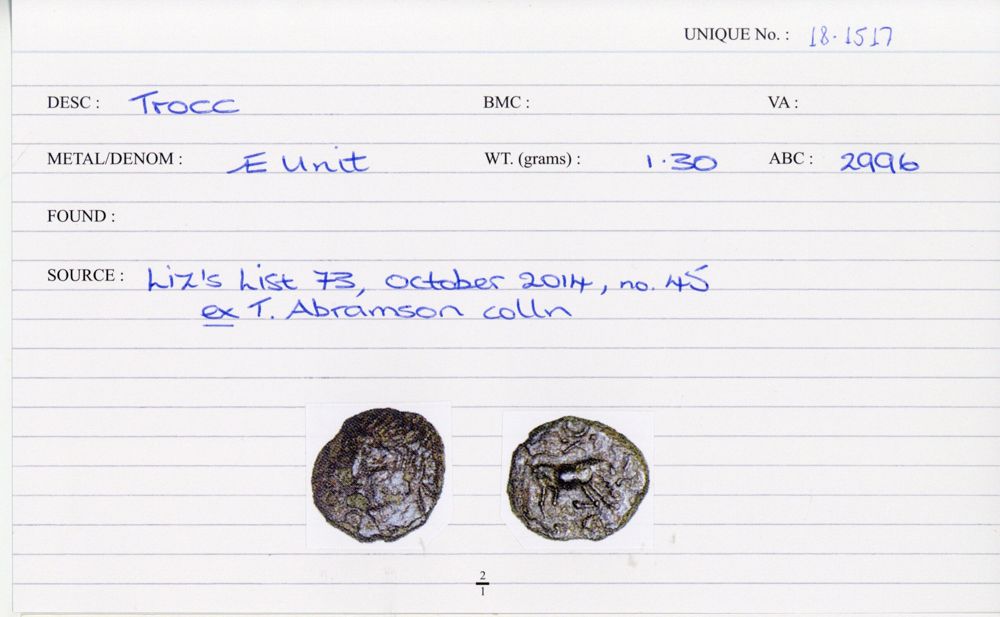 UNIQUE No. : 18.1517
DESC : Trocc BMC : VA :
METAL/DENOM : Æ Unit WT. (grams) : 1.30 ABC : 2996
FOUND :
SOURCE : Liz's List 73, October 2014, no. 45
ex T. Abramson colln
2
1